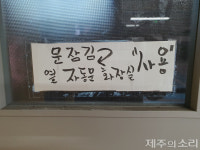 문잠김
열 자동문 화장실 "사용"
제주의소리